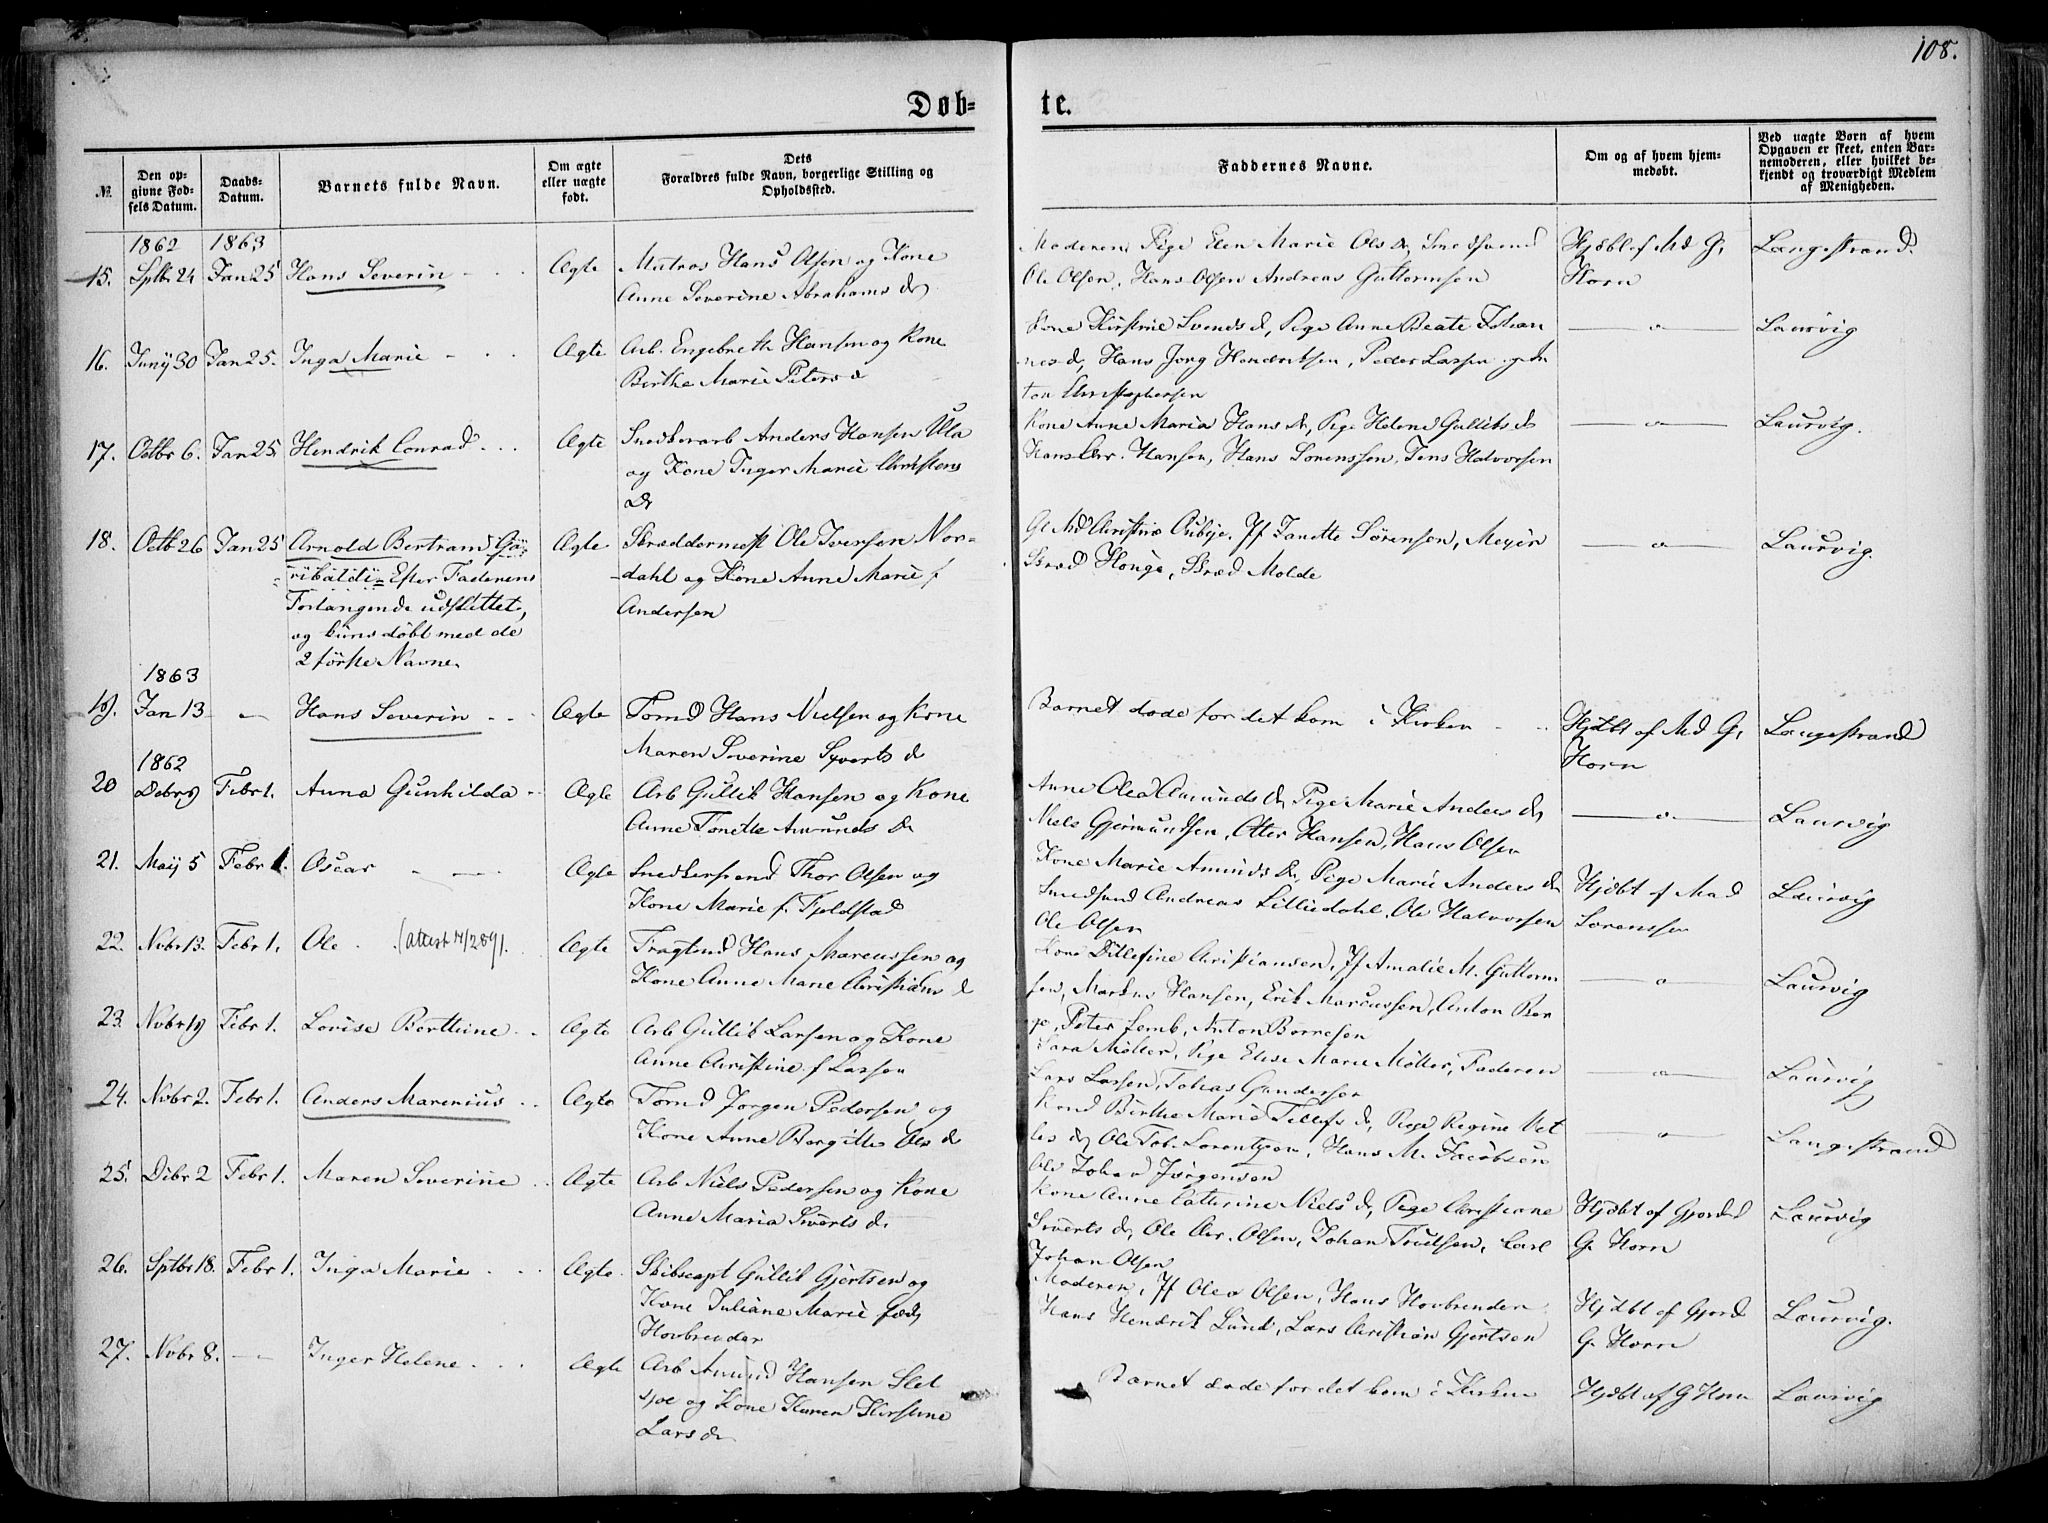 108.
Døb-
te.
№
Den op-
givne Fød-
sels Datum.
Daabs-
Datum.
Barnets fulde Navn.
Om ægte
eller uægte
født.
Dets
Forældres fulde Navn, borgerlige Stilling og
Opholdssted.
Faddernes Navne.
Om og af hvem hjem-
medøbt.
Ved uægte Børn af hvem
Opgaven er skeet, enten Bar-
nemoderen, eller hvilket be-
kjendt og troværdigt Medlem
af Menigheden.
1862 1863
15. Sptbr 24 Jan 25 Hans Severin Ægte Matros Hans Olsen og Kone
Anne Severine Abrahams D
Moderen, Pige Elen Marie Ols D, Smedsvend
Ole Olsen, Hans Olsen Andreas Guttormsen
Hjdbt af Md G,
Horn
Langestrand
16. Juny 30 Jan 25. Inga Marie Ægte Arb. Engebreth Hansen og Kone
Birthe Marie Peters D
Kone Kirstine Svends d, Pige Anne Beate Johan
nes d, Hans Jørg Hendriksen, Peder Larsen, An
ton Christophersen
— " — Laurvig
17. Octbr 6. Jan 25 Hendrik Conrad Ægte Snedkerarb Anders Hansen Ula
og Kone Inger Marie Christens
D
Kone Anne Maria Hans D, Pige Helene Gulliks d
Hans Chr. Hansen, Hans Sørenssen, Jens Halvorsen
— " — Laurvig.
18. Octb 26 Jan 25 Arnold Bertrand Ga-
ribaldi Efter Faderens
Forlangende udslettet,
og kuns døbt med de
2 første Navne.
Ægte Skræddermest Ole Iversen Nor-
dahl og Kone Anne Marie f
Andersen
Gl Md Christine Oubye, Jf Janette Sørensen, Meyer
Skræd Honge, Skræd Molde
— " — Laurvig.
1863
19. Jan 13 " Hans Severin Ægte Tømd Hans Nielsen og Kone
Maren Severine Syverts d
Barnet døde for det kom i Kirken
Hjdbt af Md G,
Horn
Langestrand
1862
20 Debr 9 Febr 1. Anna Gunhilda Ægte Arb Gullik Hansen og Kone
Anne Tonette Amunds D
Anne Olea Amunds D, Pige Marie Anders d,
Niels Gjermundsen, Otter Hansen, Hans Olsen
— " — Laurvig
21. May 5 Febr 1. Oscar Ægte Snedkersvend Thor Olsen og
Kone Marie f. Fjeldstad
Kone Marie Amunds D, Pige Marie Anders d
Smedsvend Andreas Lilliedahl, Ole Halvorsen
Ole Olsen
Hjdbt af Mad
Sørenssen
Laurvig
22. Nvbr 13. Febr 1. Ole (attest 7/2 89). Ægte Fragtmd Hans Marcussen og
Kone Anne Marie Christians d
Kone Dillefine Christiansen, Jf Amalie M. Guttorm
sen, Markus Hansen, Erik Marcussen, Anton Bør
ge, Peter Lemb, Anton Børresen
— " — Laurvig
23. Nvbr 19 Febr 1. Lovise Berthine Ægte Arb Gullik Larsen og Kone
Anne Christine f Larsen
Sara Møller, Pige Elise Marie Møller, Faderen
Lars Larsen, Tobias Gundersen
— " — Laurvig
24. Nvbr 2. Febr 1. Anders Marenius Ægte Tømd Jørgen Pedersen og
Kone Anne Bergitte Ols d
Kone Birthe Marie Tellefs d, Pige Regine Net
les d, Ole Tob. Lorentzen, Hans M. Jacobsen
Ole Johan Jørgensen
— " — Langestrand
25. Debr 2 Febr 1. Maren Severine Ægte Arb Niels Pedersen og Kone
Anne Maria Siverts d.
Kone Anne Cathrine Niels d, Pige Christiane
Siverts d, Ole Chr. Olsen, Johan Truelsen, Carl
Johan Olsen
Hjdbt af Gjorde
G. Horn
Laurvig
26. Sptbr 18. Febr 1. Inga Marie Ægte. Skibscapt Gullik Gjertsen og
Kone Juliane Marie født
Hovbrender
Moderen, Jf Olea Olsen, Hans Hovbrender
Hans Hendrik Lund, Lars Christian Gjertsen
Hjdbt af Gjord
G. Horn
Laurvig.
27. Nvbr 8. — Inger Helene Ægte Arb Amund Hansen Slet
og Kone Karen Kirstine
Lars d
Barnet døde for det kom i Kirken
Hjdbt af G Horn Laurvig